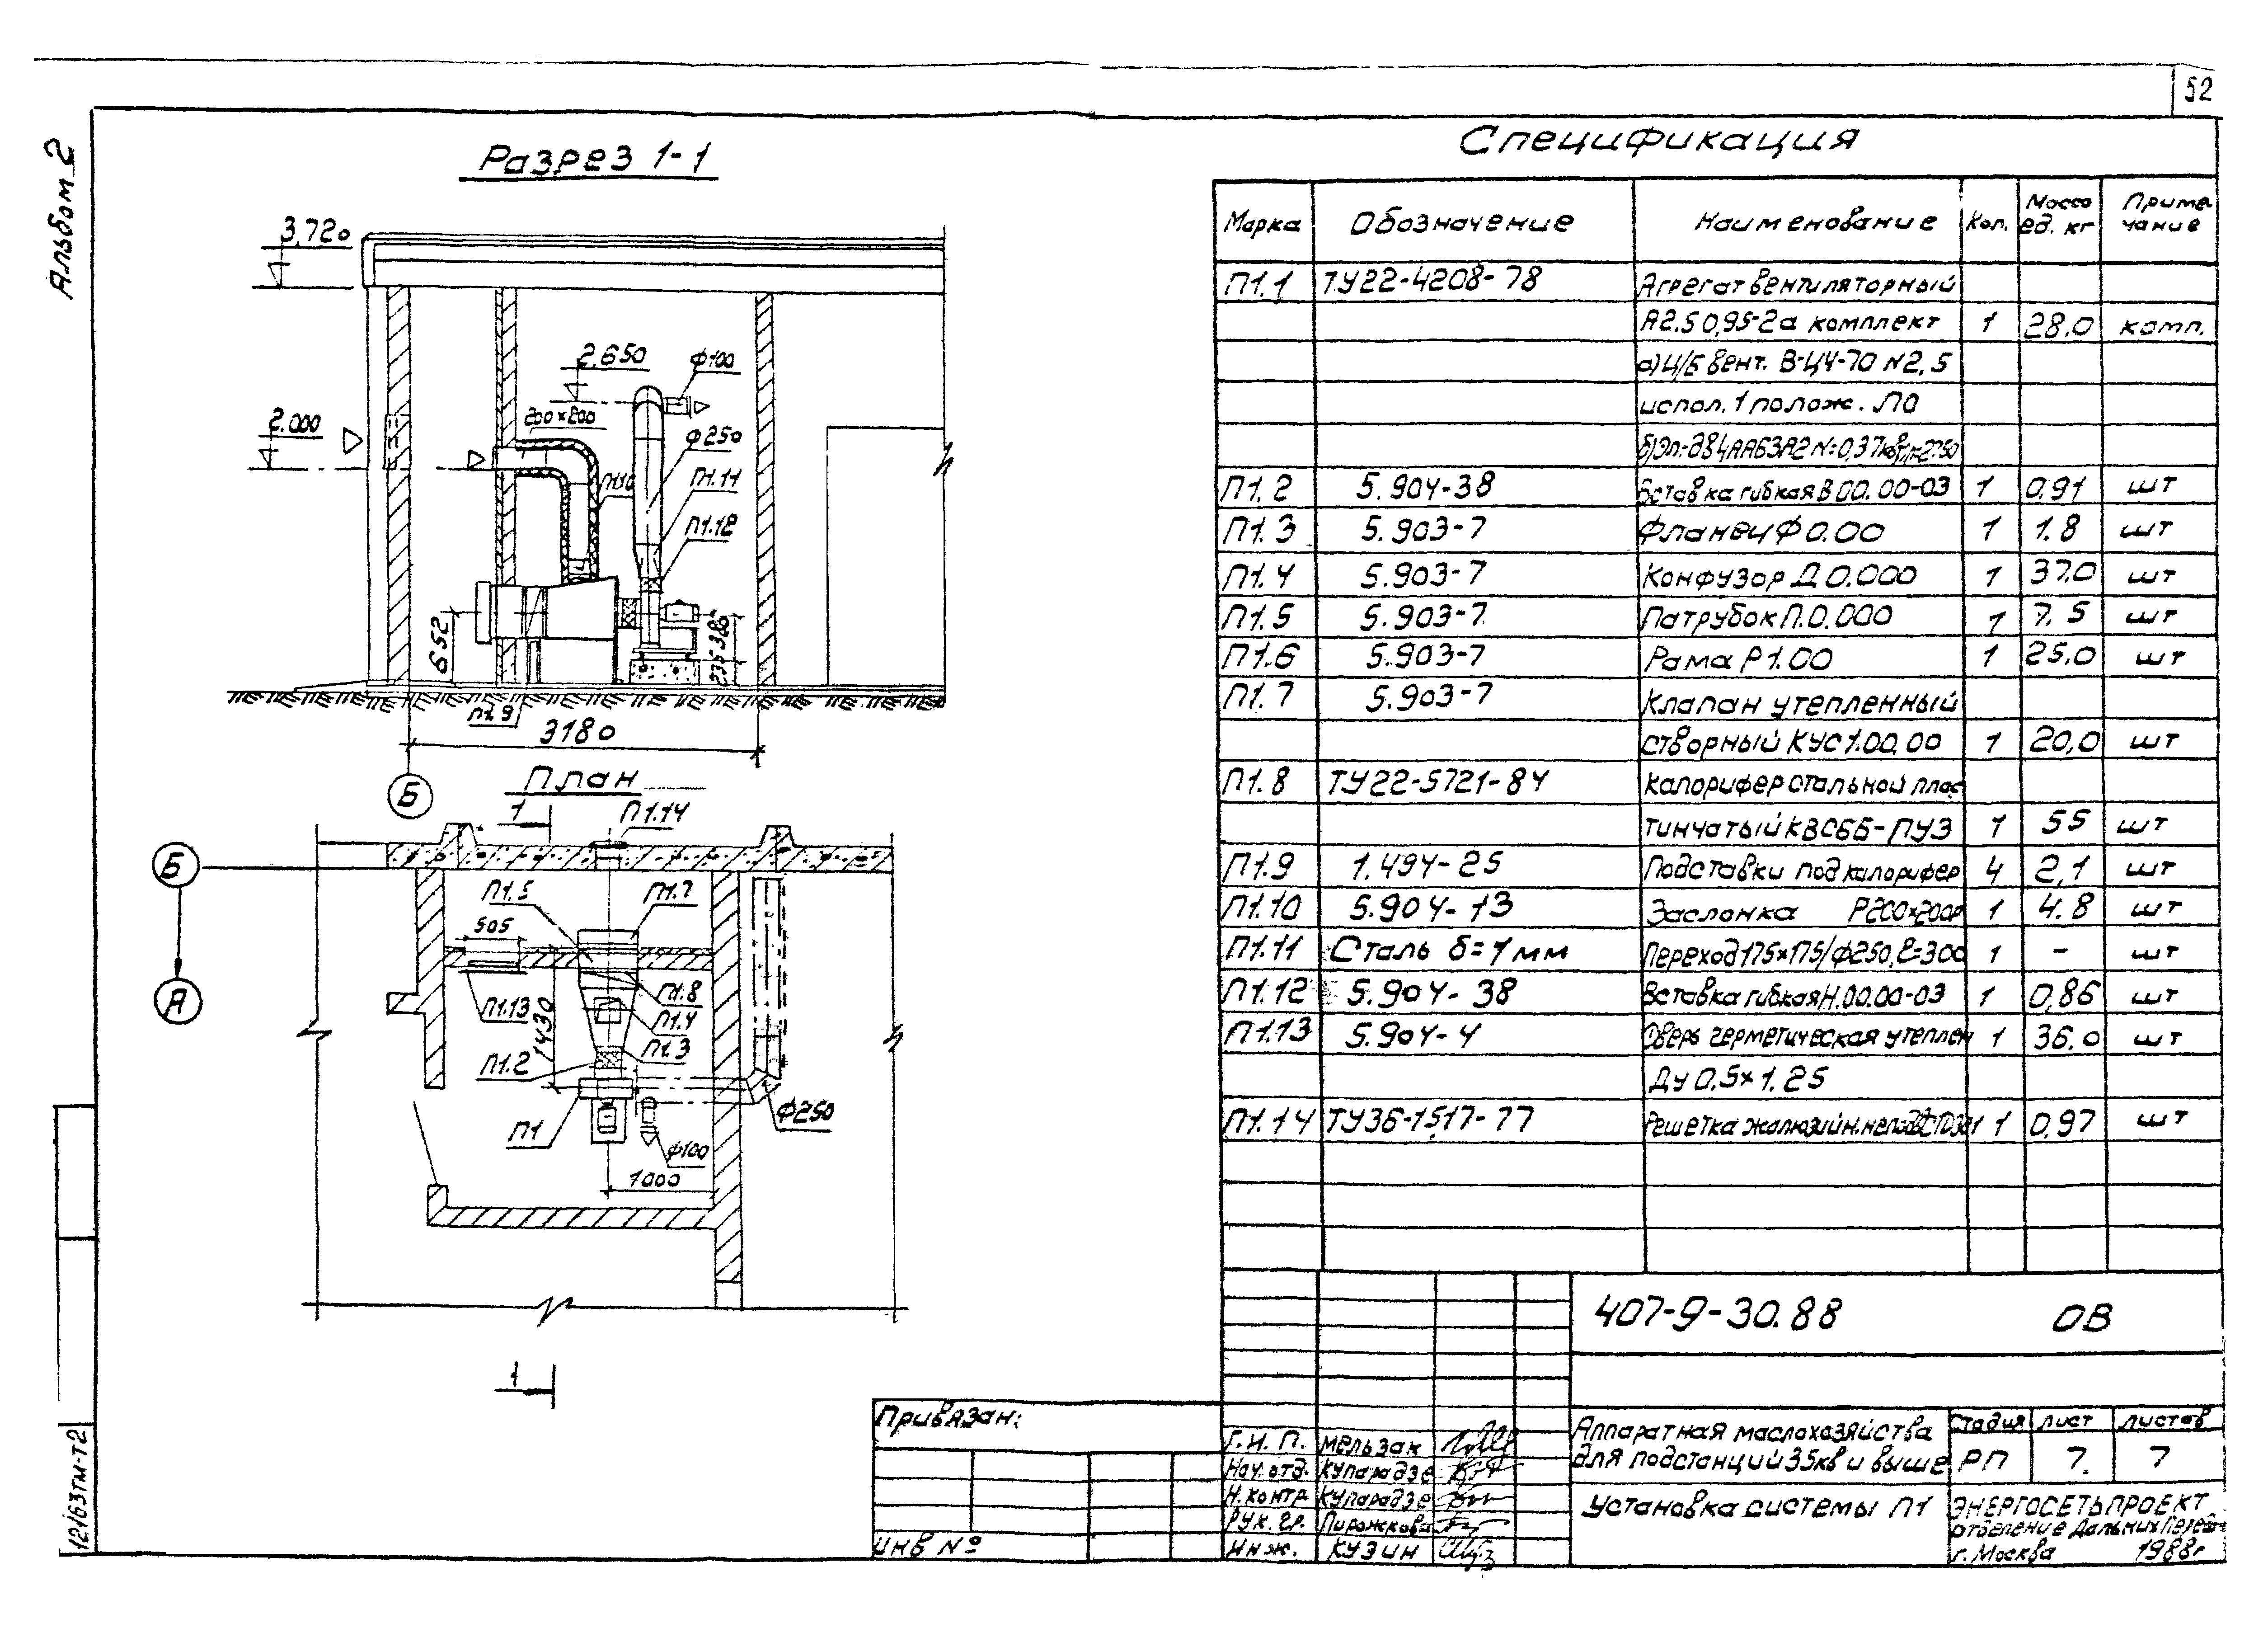 52
Альбом 2
Разрез 1-1
3,720
2,650
ф100
2.000
200×200
ф250
П1.10
П1.11
П1.12
652
235
380
П1.9
3180
Б
План
1
П1.14
Б
А
П1.5
П1.7
505
П1.13
П1.8
П1.4
П1.3
П1.2
1430
П1
ф250
ф100
1000
1
Спецификация
Марка Обозначение Наименование Кол. Масса ед. кг Примечание
П1.1 ТУ22-4208-78 Агрегат вентиляторный
А2,5 0,95-2а комплект 1 28.0 комп.
а) Ц/Б вент. В-Ц4-70 N2,5
испол. 1 полож. Л0
б) Эл-дв 4АА63А2 N=0,37квт
П1.2 5.904-38 Вставка гибкая В 00.00-03 1 0,91 шт
П1.3 5.903-7 Фланец Ф 0.00 1 1.8 шт
П1.4 5.903-7 Конфузор Д 0.000 1 37.0 шт
П1.5 5.903-7 Патрубок П.0.000 1 7.5 шт
П1.6 5.903-7 Рама Р 1.00 1 25.0 шт
П1.7 5.903-7 Клапан утепленный
створный КУС 1.00.00 1 20,0 шт
П1.8 ТУ22-5721-84 Калорифер стальной плас
тинчатый КВСБ6-ПУЗ 1 55 шт
П1.9 1.494-25 Подставки под калорифер 4 2,1 шт
П1.10 5.904-13 Заслонка Р200×200Р 1 4.8 шт
П1.11 Сталь δ=1мм Переход 175×175/ф250, ℓ=300 1 - шт
П1.12 5.904-38 Вставка гибкая Н.00.00-03 1 0,86 шт
П1.13 5.904-4 Дверь герметическая утеплен 1 36.0 шт
ДУ 0.5×1.25
П1.14 ТУ36-1517-77 Решетка жалюзийн. 1 0,97 шт
407-9-30.88 ОВ
Привязан:
ИНВ №
Г.И.П. Мельзак
Нач. отд. Купарадзе
Н. контр. Купарадзе
Рук. гр. Пирожкова
Инж. Кузин
Аппаратная маслохозяйства
для подстанций 35кв и выше
Стадия Лист Листов
РП 7. 7
Установка системы П1
ЭНЕРГОСЕТЬПРОЕКТ
отделение Дальних Передач
г. Москва 1988г
12163тм-т2